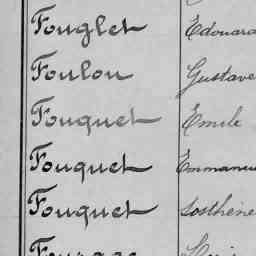 Fouglet Edouard
Foulou Gustave
Fouquet Emile
Fouquet Emmanue
Fouquet Sosthène